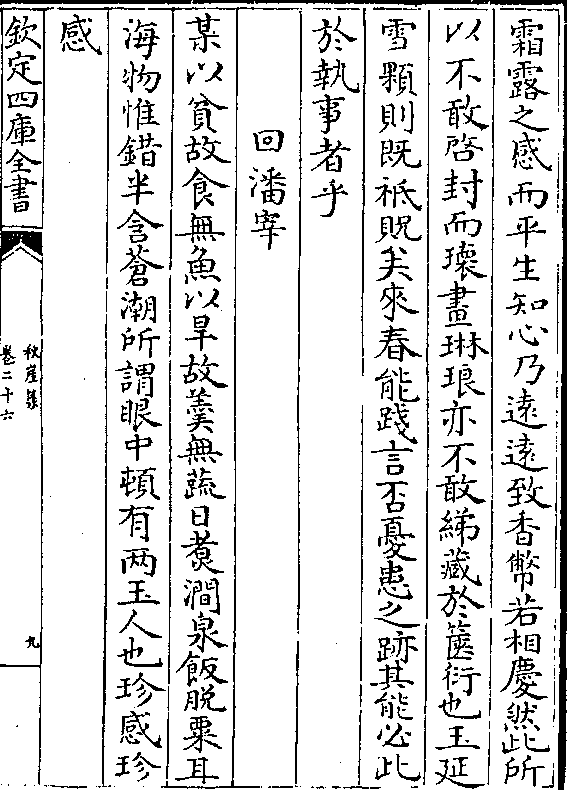 霜露之感而平生知心乃遠遠致香幣若相慶然此所
以不敢啓封而瓌畫琳琅亦不敢綈藏於篋衍也玉延
雪顆則既祇貺矣來春能踐言否憂患之跡其能必此
於執事者乎
回潘宰
某以貧故食無魚以旱故羮無蔬日煑澗泉飯脱粟耳
海物惟錯半含蒼潮所謂眼中頓有两玉人也珍感珍
感
欽定四庫全書
秋崖集
卷二十六
九